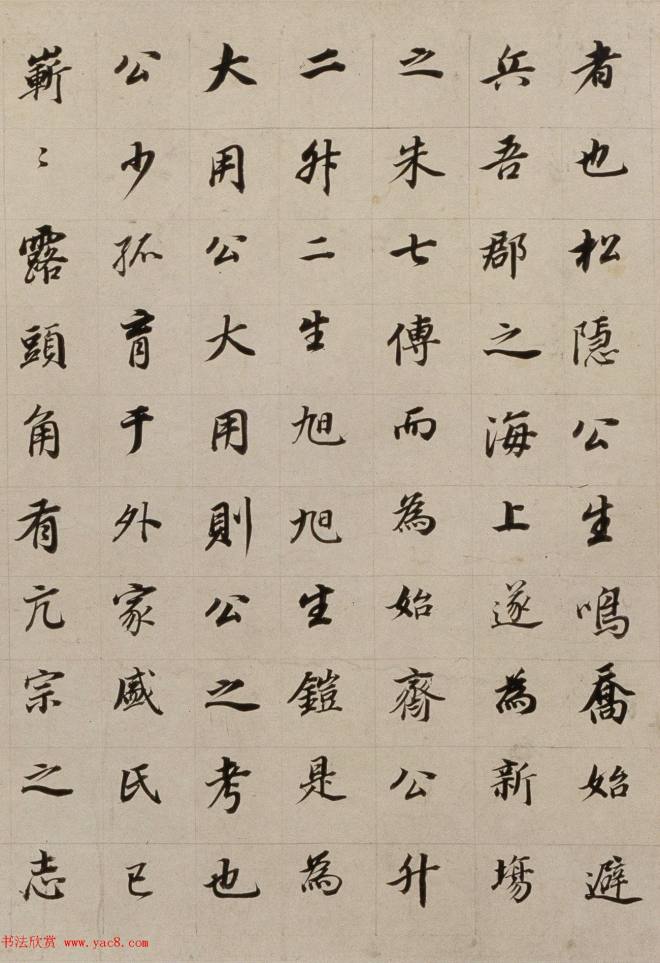 者也松隱公生鳴喬始避
兵吾郡之海上遂為新場
之朱七傳而為始齋公升
二升二生旭旭生鎧是為
大用公大用則公之考也
公少孤育于外家盛氏已
嶄〻露頭角有亢宗之志
书法欣赏 www.yac8.com